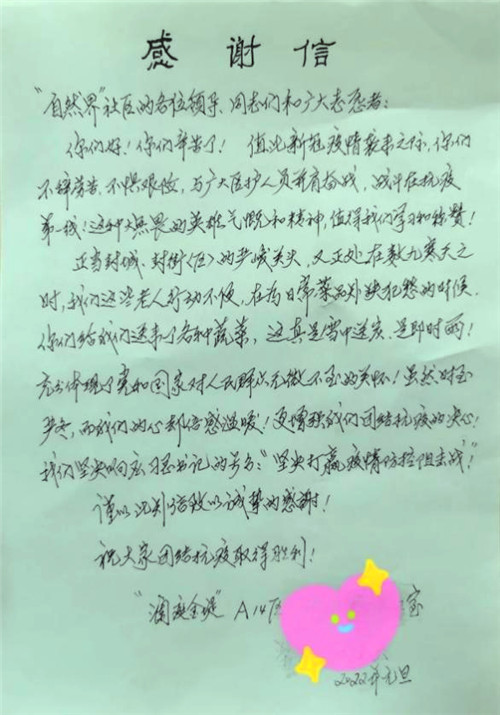 感谢信
"自然界"社区的各位领导、同志们和广大志愿者:
你们好!你们辛苦了!值此新冠疫情袭来之际,你们
不辞劳苦、不惧艰险,与广大医护人员并肩奋战,战斗在抗疫
第一线!这种大无畏的英雄气慨和精神,值得我们学习和称赞!
正当封城、封街(区)的严峻关头,又正处在数九寒天之
时,我们这些老人行动不便,在为日常菜品外缺犯愁的时候,
你们给我们送来了各种蔬菜,这真是雪中送炭、是即时雨!
充分体现了党和国家对人民群众无微不至的关怀!虽然时至
严冬,而我们的心都倍感温暖!更增强我们团结抗疫的决心!
我们坚决响应习总书记的号召:"坚决打赢疫情防控阻击战"!
谨以此列信致以诚挚的感谢!
祝大家团结抗疫取得胜利!
"澜庭金堤" A14 宝
2022年元旦